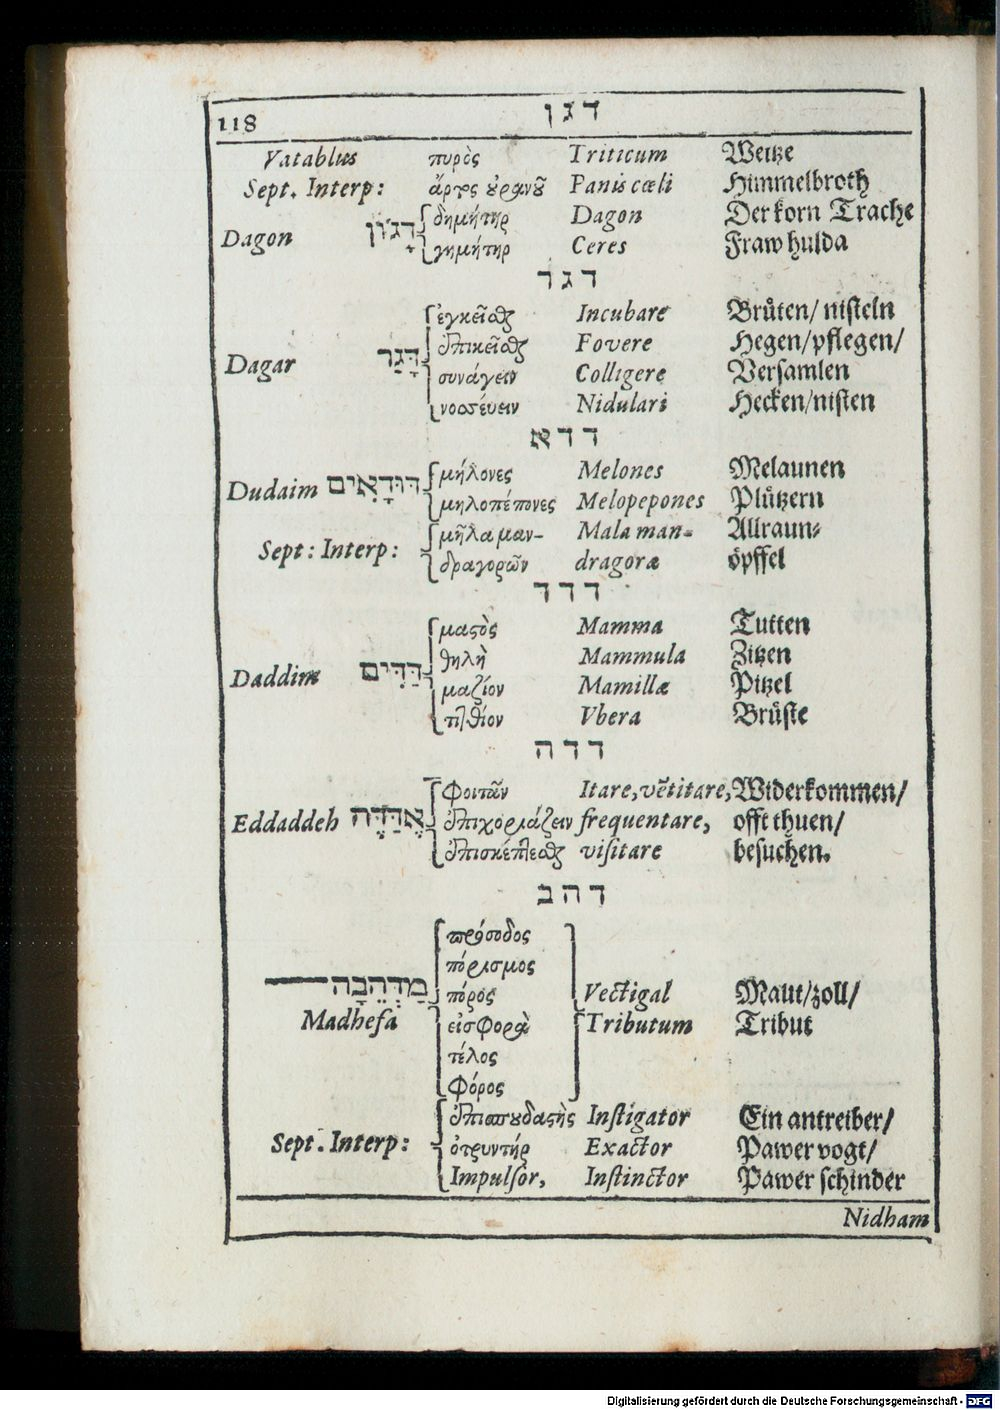 118 דגן
Vatablus πυρὸς Triticum Weitze
Sept. Interp: ἄρτος οὐρανοῦ Panis cœli Himmelbroth
δημήτηρ Dagon Der korn Trache
Dagon דָּגוֹן
γημήτηρ Ceres Fraw hulda
דגר
ἐγκεῖσθαι Incubare Brüten/ nisteln
ἐπικεῖσθαι Fovere Hegen/pflegen/
Dagar דָּגַר
συνάγειν Colligere Versamlen
νοσσέυειν Nidulari Hecken/nisten
דדא
μήλονες Melones Melaunen
Dudaim דּוּדָאִים
μηλοπέπονες Melopepones Plützern
μῆλα μαν- Mala man- Allraun-
Sept: Interp:
δραγορῶν dragoræ öpffel
דדד
μαστὸς Mamma Tutten
θηλὴ Mammula Zitzen
Daddim דַּדִּים
μαζίον Mamillæ Pitzel
τιτθίον Vbera Brüste
דדה
φοιτᾶν Itare, vẽtitare, Widerkommen/
Eddaddeh אֶדַּדֶּה ἐπιχοριάζειν frequentare, offt thuen/
ἐπισκέπτεσθαι visitare besuchen.
דהב
πρόσοδος
πόρισμος
מַדְהֵבָה πόρος Vectigal Maut/zoll/
Madhefa εἰσφορὰ Tributum Tribut
τέλος
φόρος
ἐπισπουδαστὴς Instigator Ein antreiber/
Sept. Interp: ὀτρυντήρ Exactor Pawer vogt/
Impulsor, Instinctor Pawer schinder
Nidham
Digitalisierung gefördert durch die Deutsche Forschungsgemeinschaft - DFG